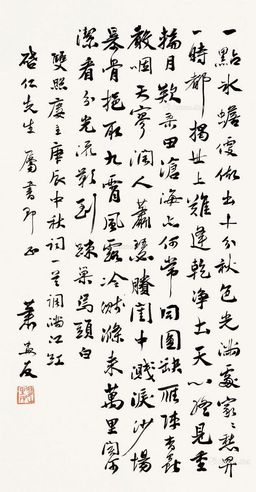 一點冰蟾便做出十分秋色光滿處家家愁冪
一時都揭世上難逢乾淨土天心終見重
輪月歎桑田滄海亦何常圓缺雁陣杳蛩
聲咽天寥闊人蕭瑟賸閨中濺淚沙場
暴骨挹取九霄風露冷滌來萬里關河
潔看分光流影到疎巢烏頭白
雙照廔主庚辰中秋詞一首調滿江紅
啓仁先生屬書即正
蕭友